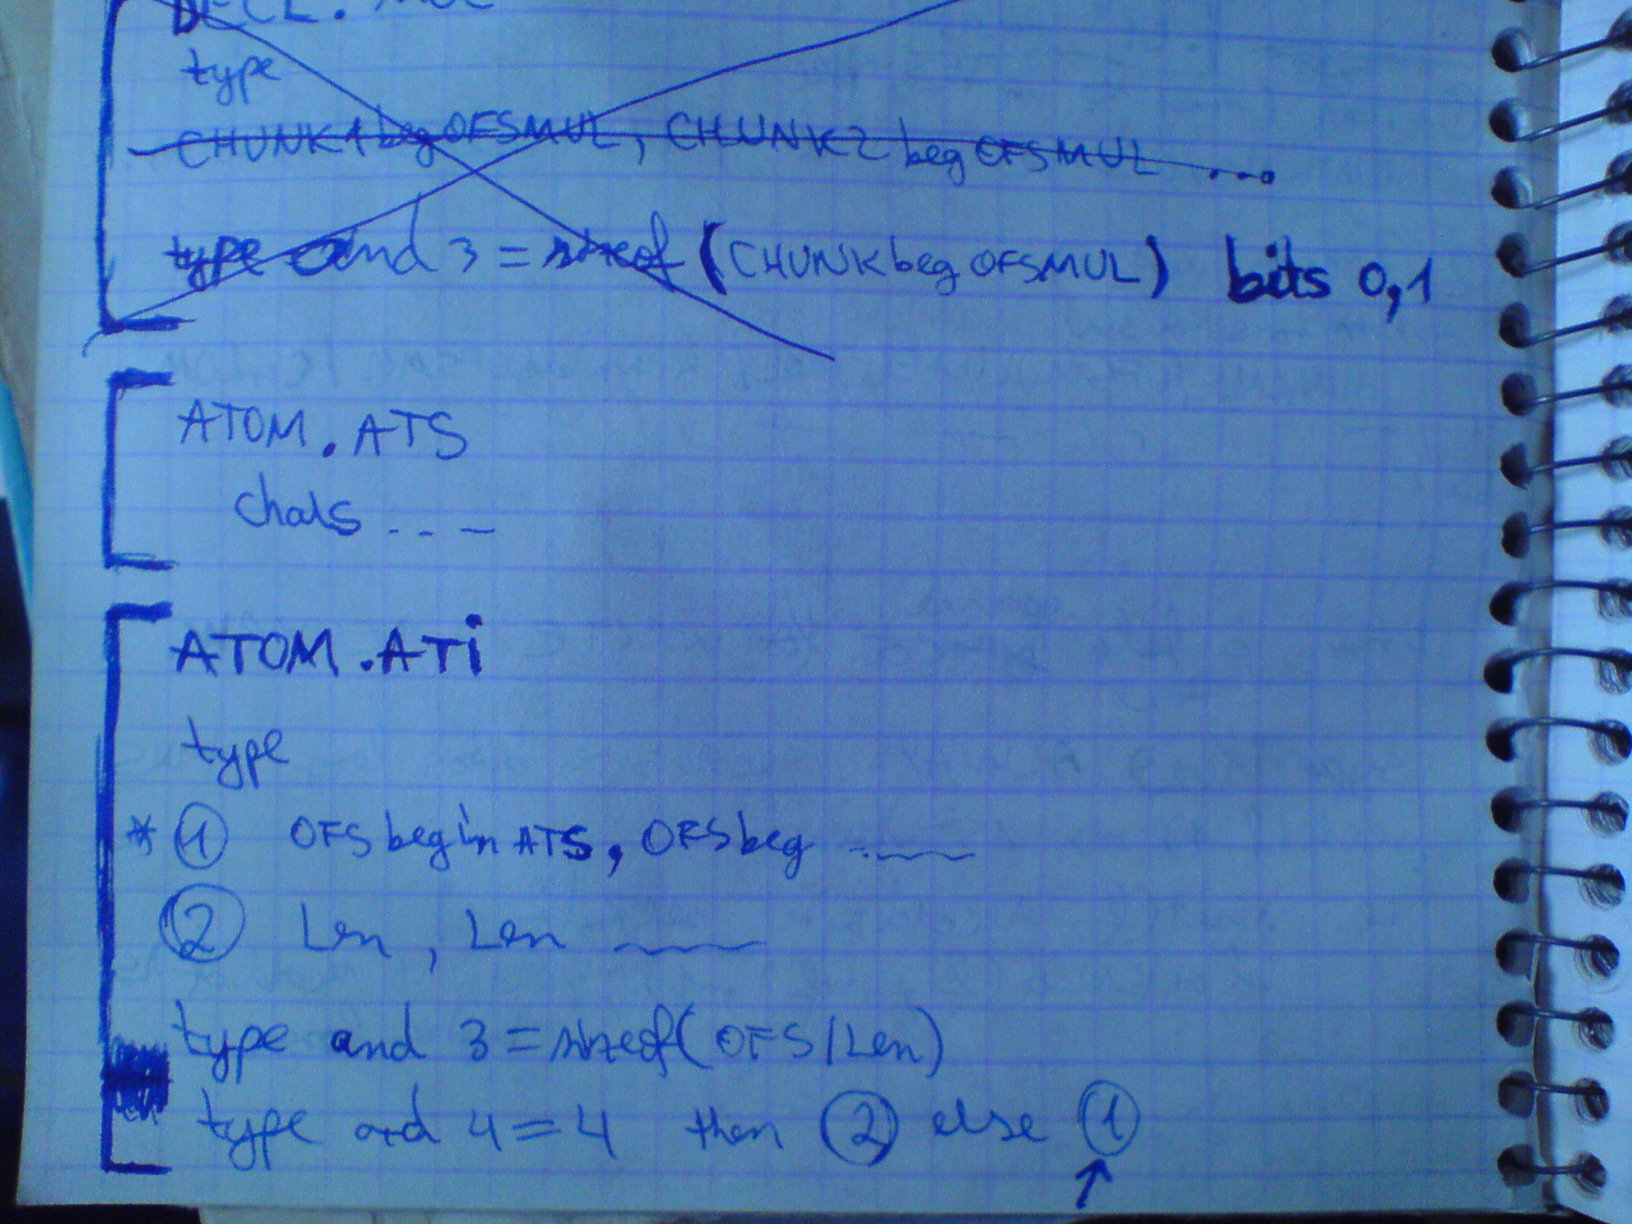 type
CHUNK1begOFSMUL, CHUNK2begOFSMUL ...
type and 3 = sizeof (CHUNKbegOFSMUL) bits 0,1
ATOM.ATS
chars ...
ATOM.ATi
type
* ① OFSbeginATS, OFSbeg ...
② Len, Len
type and 3 = sizeof(OFS/Len)
type and 4 = 4 then ② else ①